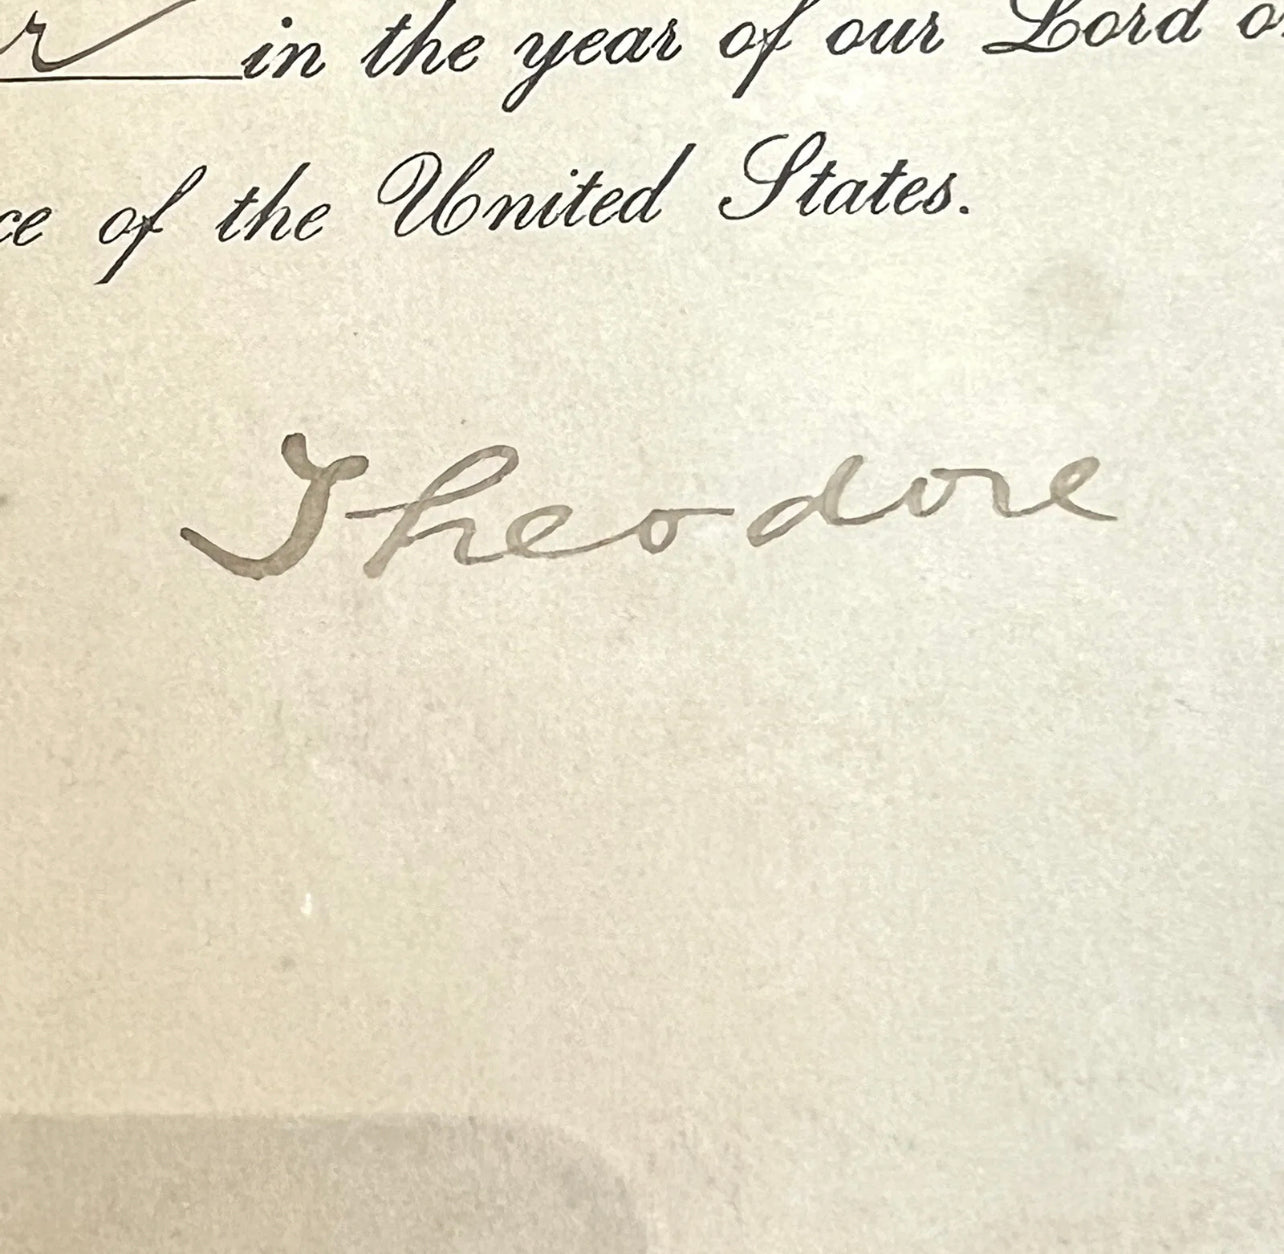 in the year of our Lord
of the United States.
Theodore